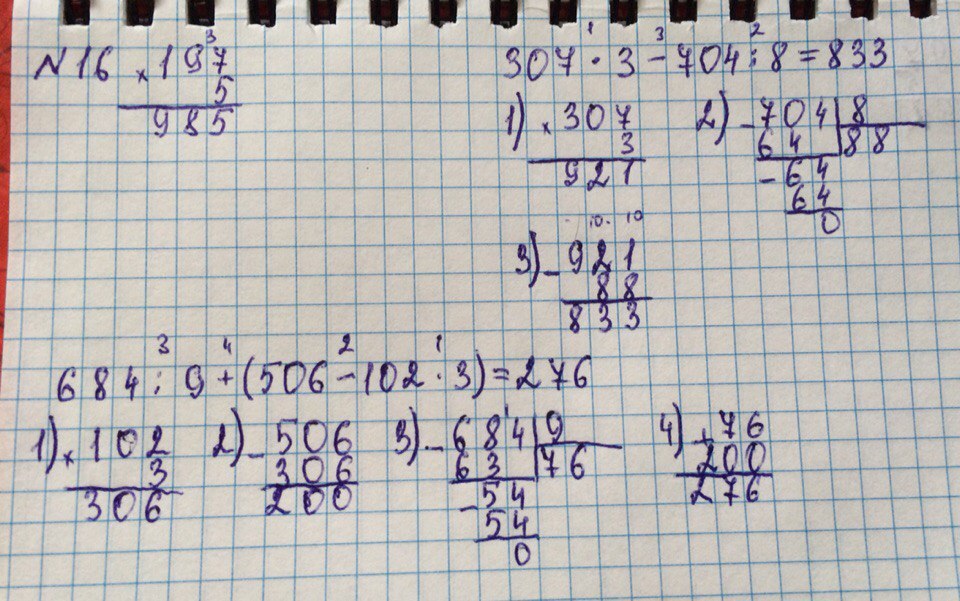 N16 ×197
5
985
307 · 3 - 704 : 8 = 833
1) ×307
3
921
2) -704 | 8
64 | 88
-64
64
0
3) -921
88
833
684 : 9 + (506 - 102 · 3) = 276
1) ×102
3
306
2) -506
306
200
3) -684 | 9
63 | 76
-54
54
0
4) +76
200
276